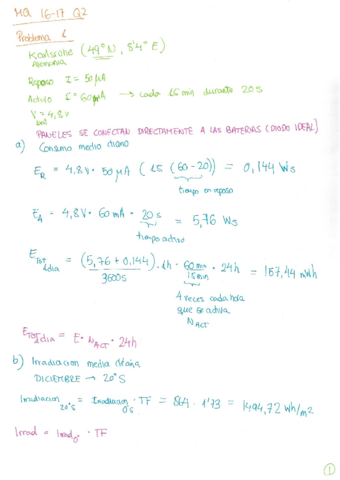 MQ 16-17 Q2
Problema 1
Karlsruhe (49°N, 8'4° E)
Alemania
Reposo I = 50 µA
Activo I = 60 µA → cada 15 min durante 20 s
V = 4,8 V
bat
PANELES SE CONECTAN DIRECTAMENTE A LAS BATERIAS (DIODO IDEAL)
a) Consumo medio diario
E_R = 4,8 V · 50 µA (15 (60-20)) = 0,144 Ws
tiempo en reposo
E_A = 4,8 V · 60 mA · 20 s = 5,76 Ws
tiempo activo
E_TOT,dia = (5,76 + 0,144)/3600s · 1h · 60 min/15 min · 24h = 157,44 mWh
4 veces cada hora
que se activa
N_ACT
E_TOT,dia = E · N_ACT · 24h
b) Irradiacion media diaria
DICIEMBRE → 20° S
Irradiacion_20°S = Irradiacion_0°S · TF = 864 · 1'73 = 1494,72 Wh/m2
Irrad = Irrad_0° · TF
1